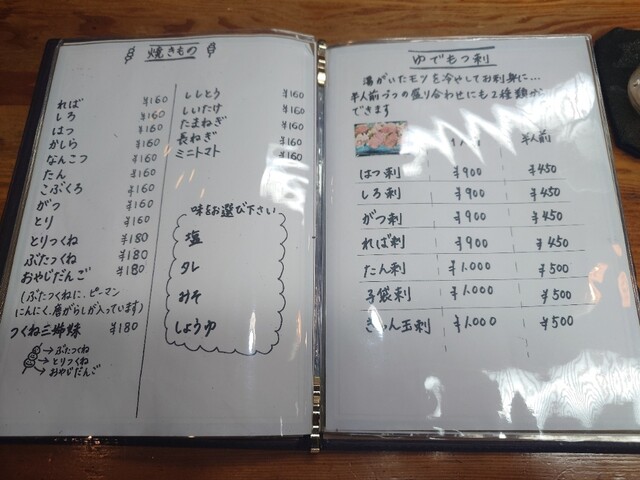 焼きもの
れば ¥160
しろ ¥160
はつ ¥160
かしら ¥160
なんこつ ¥160
たん ¥160
こぶくろ ¥160
がつ ¥160
とり ¥160
とりつくね ¥180
ぶたつくね ¥180
おやじだんご ¥180
(ぶたつくねに、ピーマン
にんにく、唐がらしが入っています)
つくね三姉妹 ¥180
→ぶたつくね
→とりつくね
→おやじだんご
ししとう ¥160
しいたけ ¥160
たまねぎ ¥160
長ねぎ ¥160
ミニトマト ¥160
味をお選び下さい
塩
タレ
みそ
しょうゆ
ゆでもつ刺
湯がいたモツを冷やしてお刺身に…
半人前づつの盛り合わせにも2種類
できます
半人前
はつ刺 ¥900 ¥450
しろ刺 ¥900 ¥450
がつ刺 ¥900 ¥450
れば刺 ¥900 ¥450
たん刺 ¥1.000 ¥500
子袋刺 ¥1.000 ¥500
きん玉刺 ¥1.000 ¥500